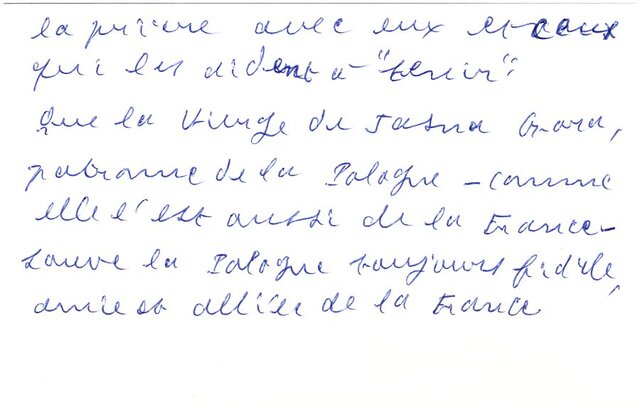 la prière avec eux et ceux
qui les aident à "tenir".
Que la Vierge de Jasna Gora,
patronne de la Pologne - comme
elle l'est aussi de la France -
sauve la Pologne toujours fidèle,
amie et alliée de la France